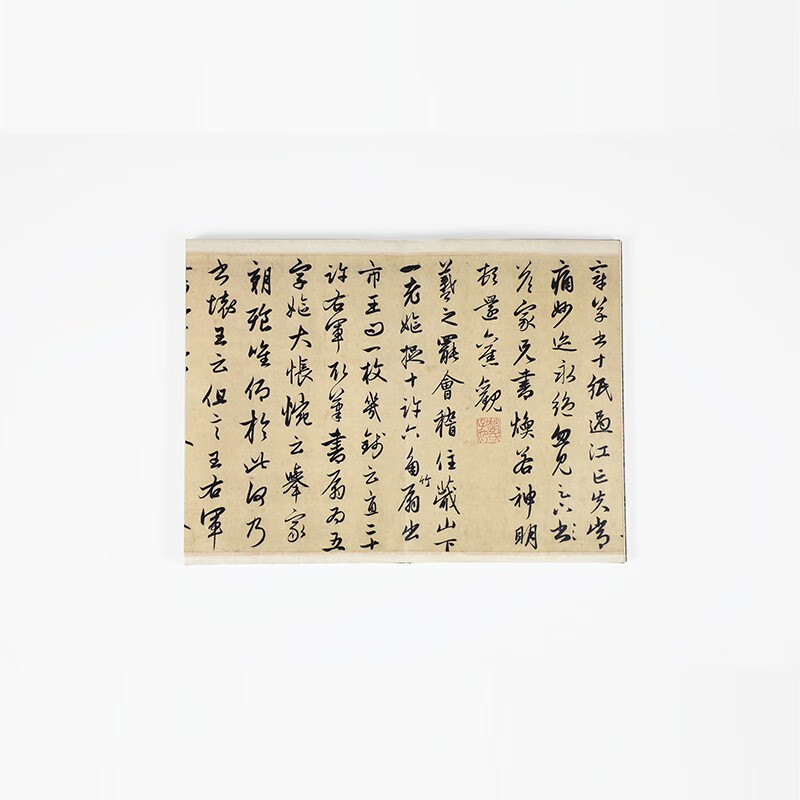 章草書十紙過江亡失常
痛妙迹永絕忽見足下
答家兄書煥若神明
頓還舊觀
趙氏子昂
羲之罷會稽住蕺山下
一老嫗捉十許六角竹扇出
市王問一枚幾錢云直二十
許右軍取筆書扇為五
字嫗大悵惋云舉家
朝飧唯仰於此何乃
書壞王云但言王右軍